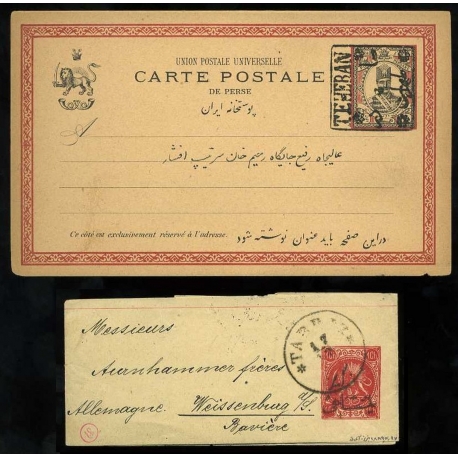 UNION POSTALE UNIVERSELLE
CARTE POSTALE
DE PERSE
TEHERAN
پوستخانه ایران
عالیجاه رفیع جایگاه رحیم خان سرتیپ افشار
Ce côté est exclusivement réservé à l'adresse.
در این صفحه باید عنوان نوشته شود
Messieurs
Aurnhammer frères
Allemagne. Weissenburg a/S.
Bavière